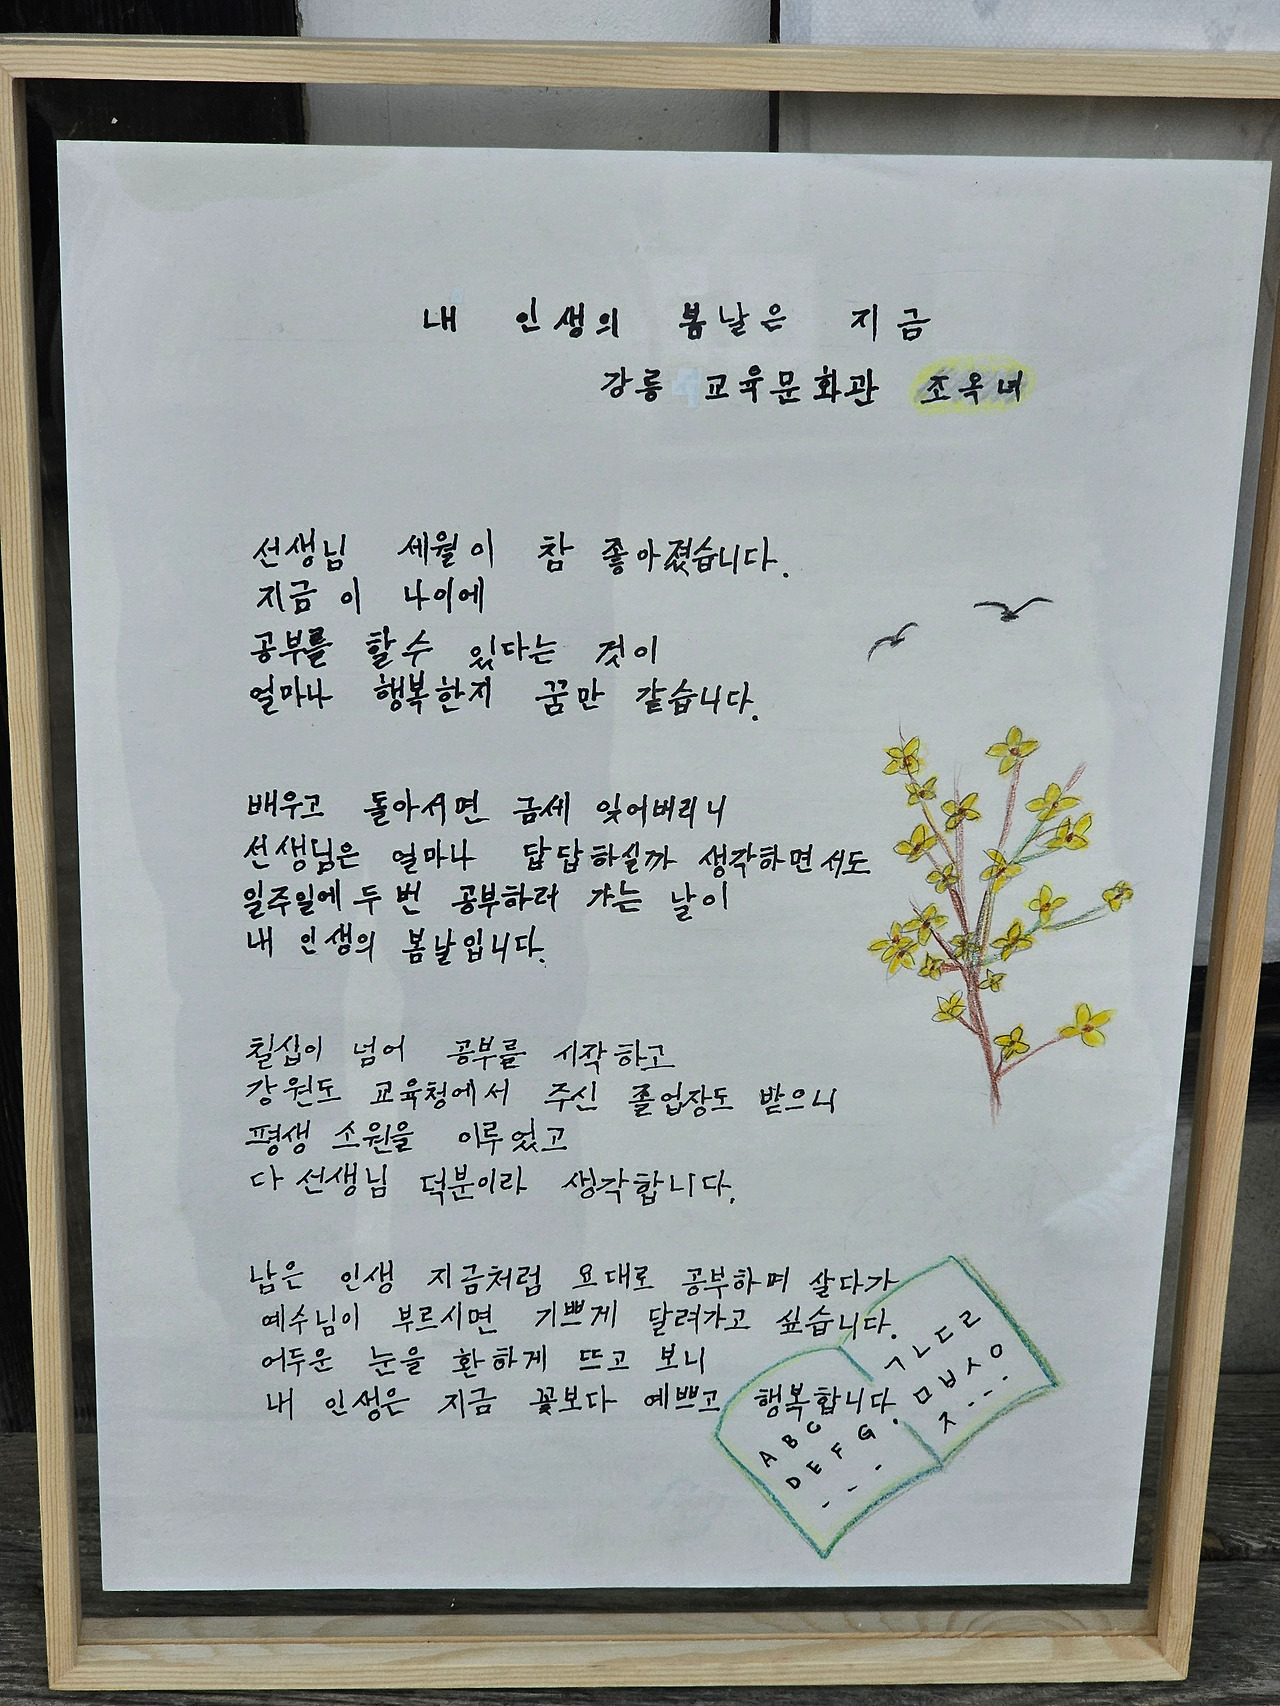 내 인생의 봄날은 지금
강릉 교육문화관 조옥녀
선생님 세월이 참 좋아졌습니다.
지금 이 나이에
공부를 할수 있다는 것이
얼마나 행복한지 꿈만 같습니다.
배우고 돌아서면 금세 잊어버리니
선생님은 얼마나 답답하실까 생각하면서도
일주일에 두 번 공부하러 가는 날이
내 인생의 봄날입니다.
칠십이 넘어 공부를 시작하고
강원도 교육청에서 주신 졸업장도 받으니
평생 소원을 이루었고
다 선생님 덕분이라 생각합니다.
남은 인생 지금처럼 요대로 공부하며 살다가
예수님이 부르시면 기쁘게 달려가고 싶습니다.
어두운 눈을 환하게 뜨고 보니
내 인생은 지금 꽃보다 예쁘고 행복합니다.
ㄱㄴㄷㄹ
ㅁㅂㅅㅇ
ㅈ---
ABC
DEFG
---